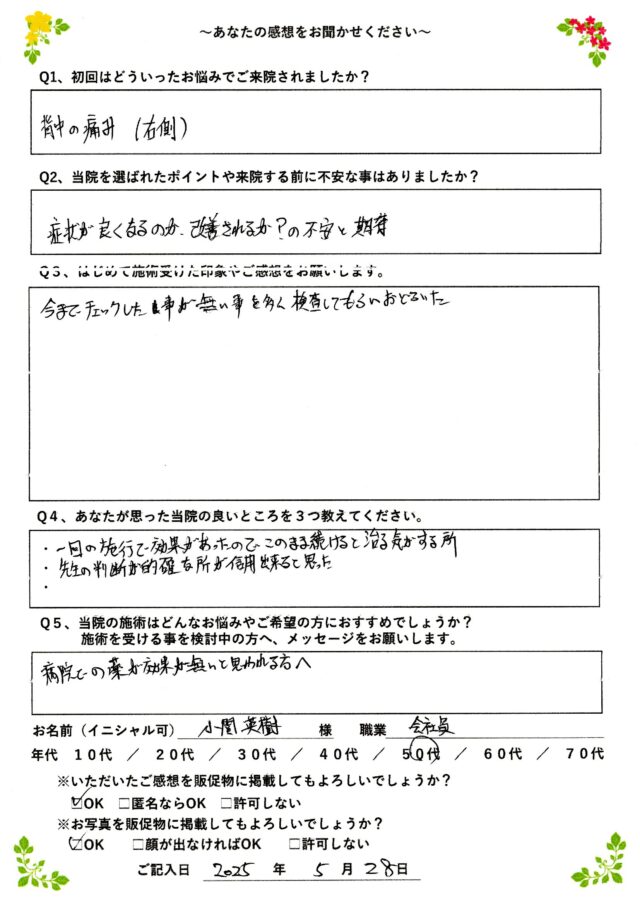 ～あなたの感想をお聞かせください～
Q1、初回はどういったお悩みでご来院されましたか？
背中の痛み（右側）
Q2、当院を選ばれたポイントや来院する前に不安な事はありましたか？
症状が良くなるのか、改善されるか？の不安と期待
Q3、はじめて施術受けた印象やご感想をお願いします。
今までチェックした事が無い事を多く検査してもらいおどろいた
Q4、あなたが思った当院の良いところを３つ教えてください。
・一回の施行で効果があったので、このまま続けると治る気がする所
・先生の判断が的確な所が信用出来ると思った
・
Q5、当院の施術はどんなお悩みやご希望の方におすすめでしょうか？
施術を受ける事を検討中の方へ、メッセージをお願いします。
病院での薬が効果が無いと思われる方へ
お名前（イニシャル可） 小関 英樹 様 職業 会社員
年代 １０代 ／ ２０代 ／ ３０代 ／ ４０代 ／ ５０代 ／ ６０代 ／ ７０代
※いただいたご感想を販促物に掲載してもよろしいでしょうか？
☑OK □匿名ならOK □許可しない
※お写真を販促物に掲載してもよろしいでしょうか？
☑OK □顔が出なければOK □許可しない
ご記入日 2025 年 5 月 28 日